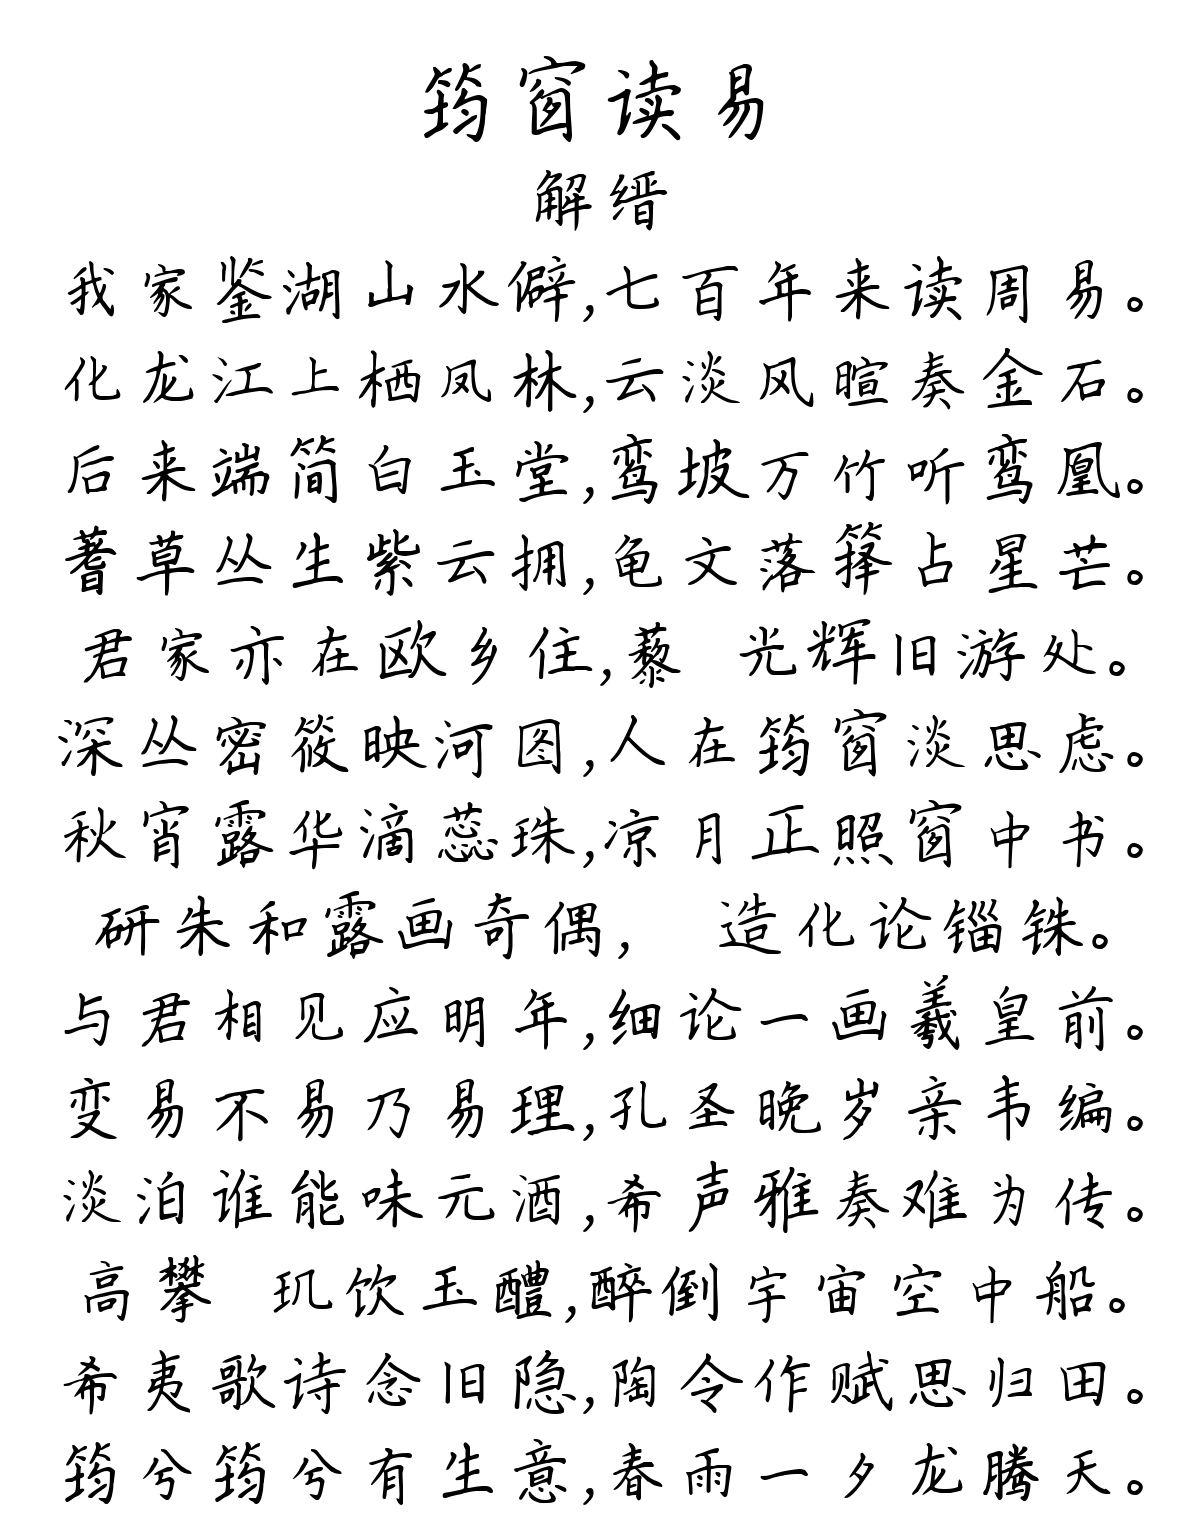 筠窗读易
解缙
我家鉴湖山水僻,七百年来读周易。
化龙江上栖凤林,云淡风暄奏金石。
后来端简白玉堂,鸾坡万竹听鸾凰。
蓍草丛生紫云拥,龟文落箨占星芒。
君家亦在欧乡住,藜 光辉旧游处。
深丛密筱映河图,人在筠窗淡思虑。
秋宵露华滴蕊珠,凉月正照窗中书。
研朱和露画奇偶, 造化论锱铢。
与君相见应明年,细论一画羲皇前。
变易不易乃易理,孔圣晚岁亲韦编。
淡泊谁能味元酒,希声雅奏难为传。
高攀 玑饮玉醴,醉倒宇宙空中船。
希夷歌诗念旧隐,陶令作赋思归田。
筠兮筠兮有生意,春雨一夕龙腾天。